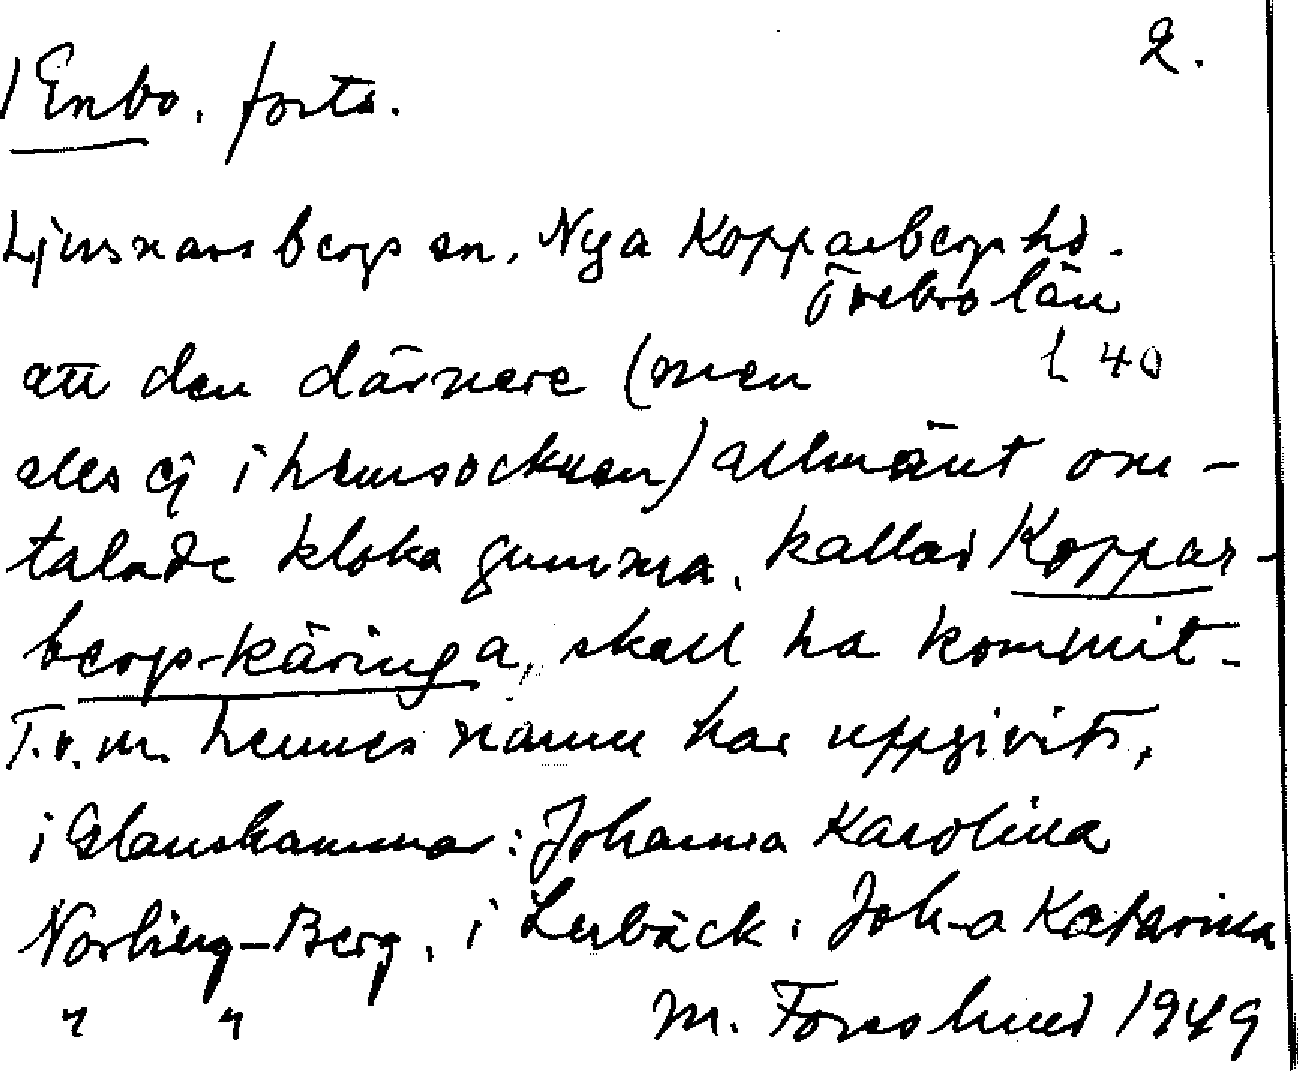 2.
1 Enbo. forts.
Ljusnarsbergs sn. Nya Kopparbergs hd.
Örebro län
att den därnere (men
alls ej i hemsocknen) allmänt om-
l 40
talade kloka gumma, kallad Koppar-
bergs-käringa, skall ha kommit.
T.o.m. hennes namn har uppgivits,
i Glanshammar: Johanna Karolina
Norling-Berg, i Lerbäck: Joh-a Katarina
" " M. Forslund 1949